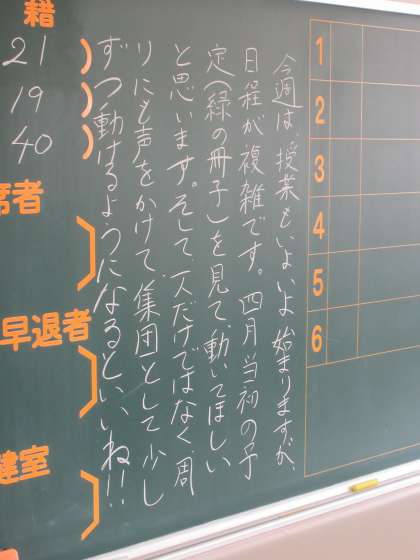 1
2
3
4
5
6
今週は、授業もいよいよ始まりますが、
日程が複雑です。四月当初の予
定（緑の冊子）を見て、動いてほしい
と思います。そして、一人だけではなく、周
りにも声をかけて、集団として少し
ずつ動けるようになるといいね!!
籍
21
19
40
席者
早退者
健室